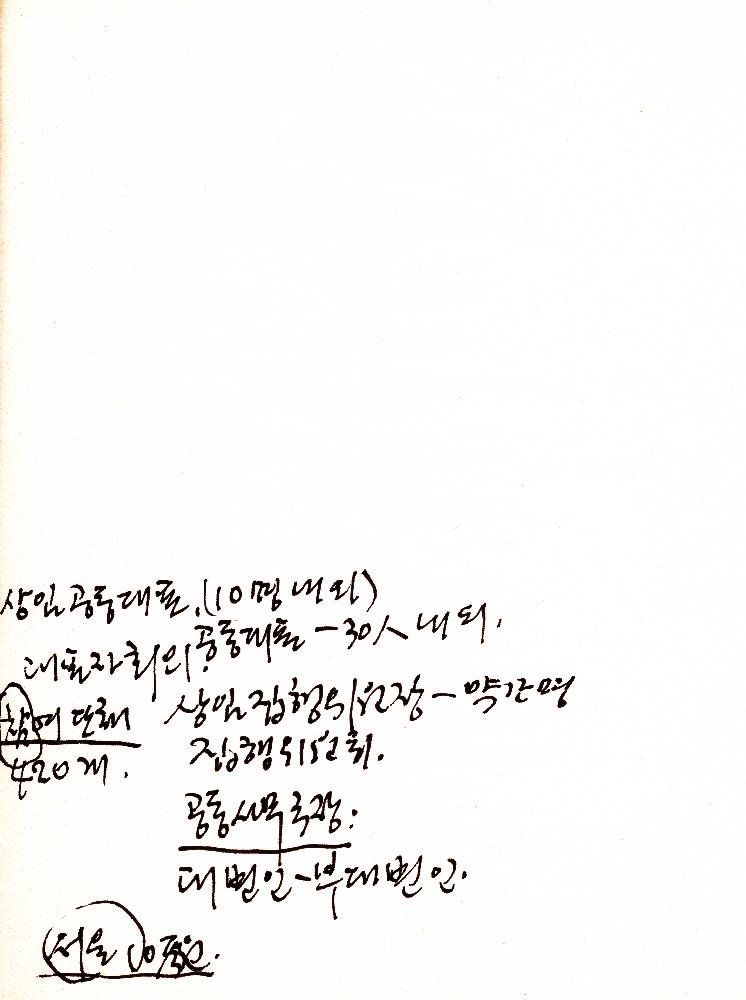 상임공동대표.(10명 내외)
공동대표 - 30人 내외.
대표자회의.
참여단체 상임집행위원장 - 약간명
420개. 집행위원회.
공동사무국장:
대변인 - 부대변인.
서울